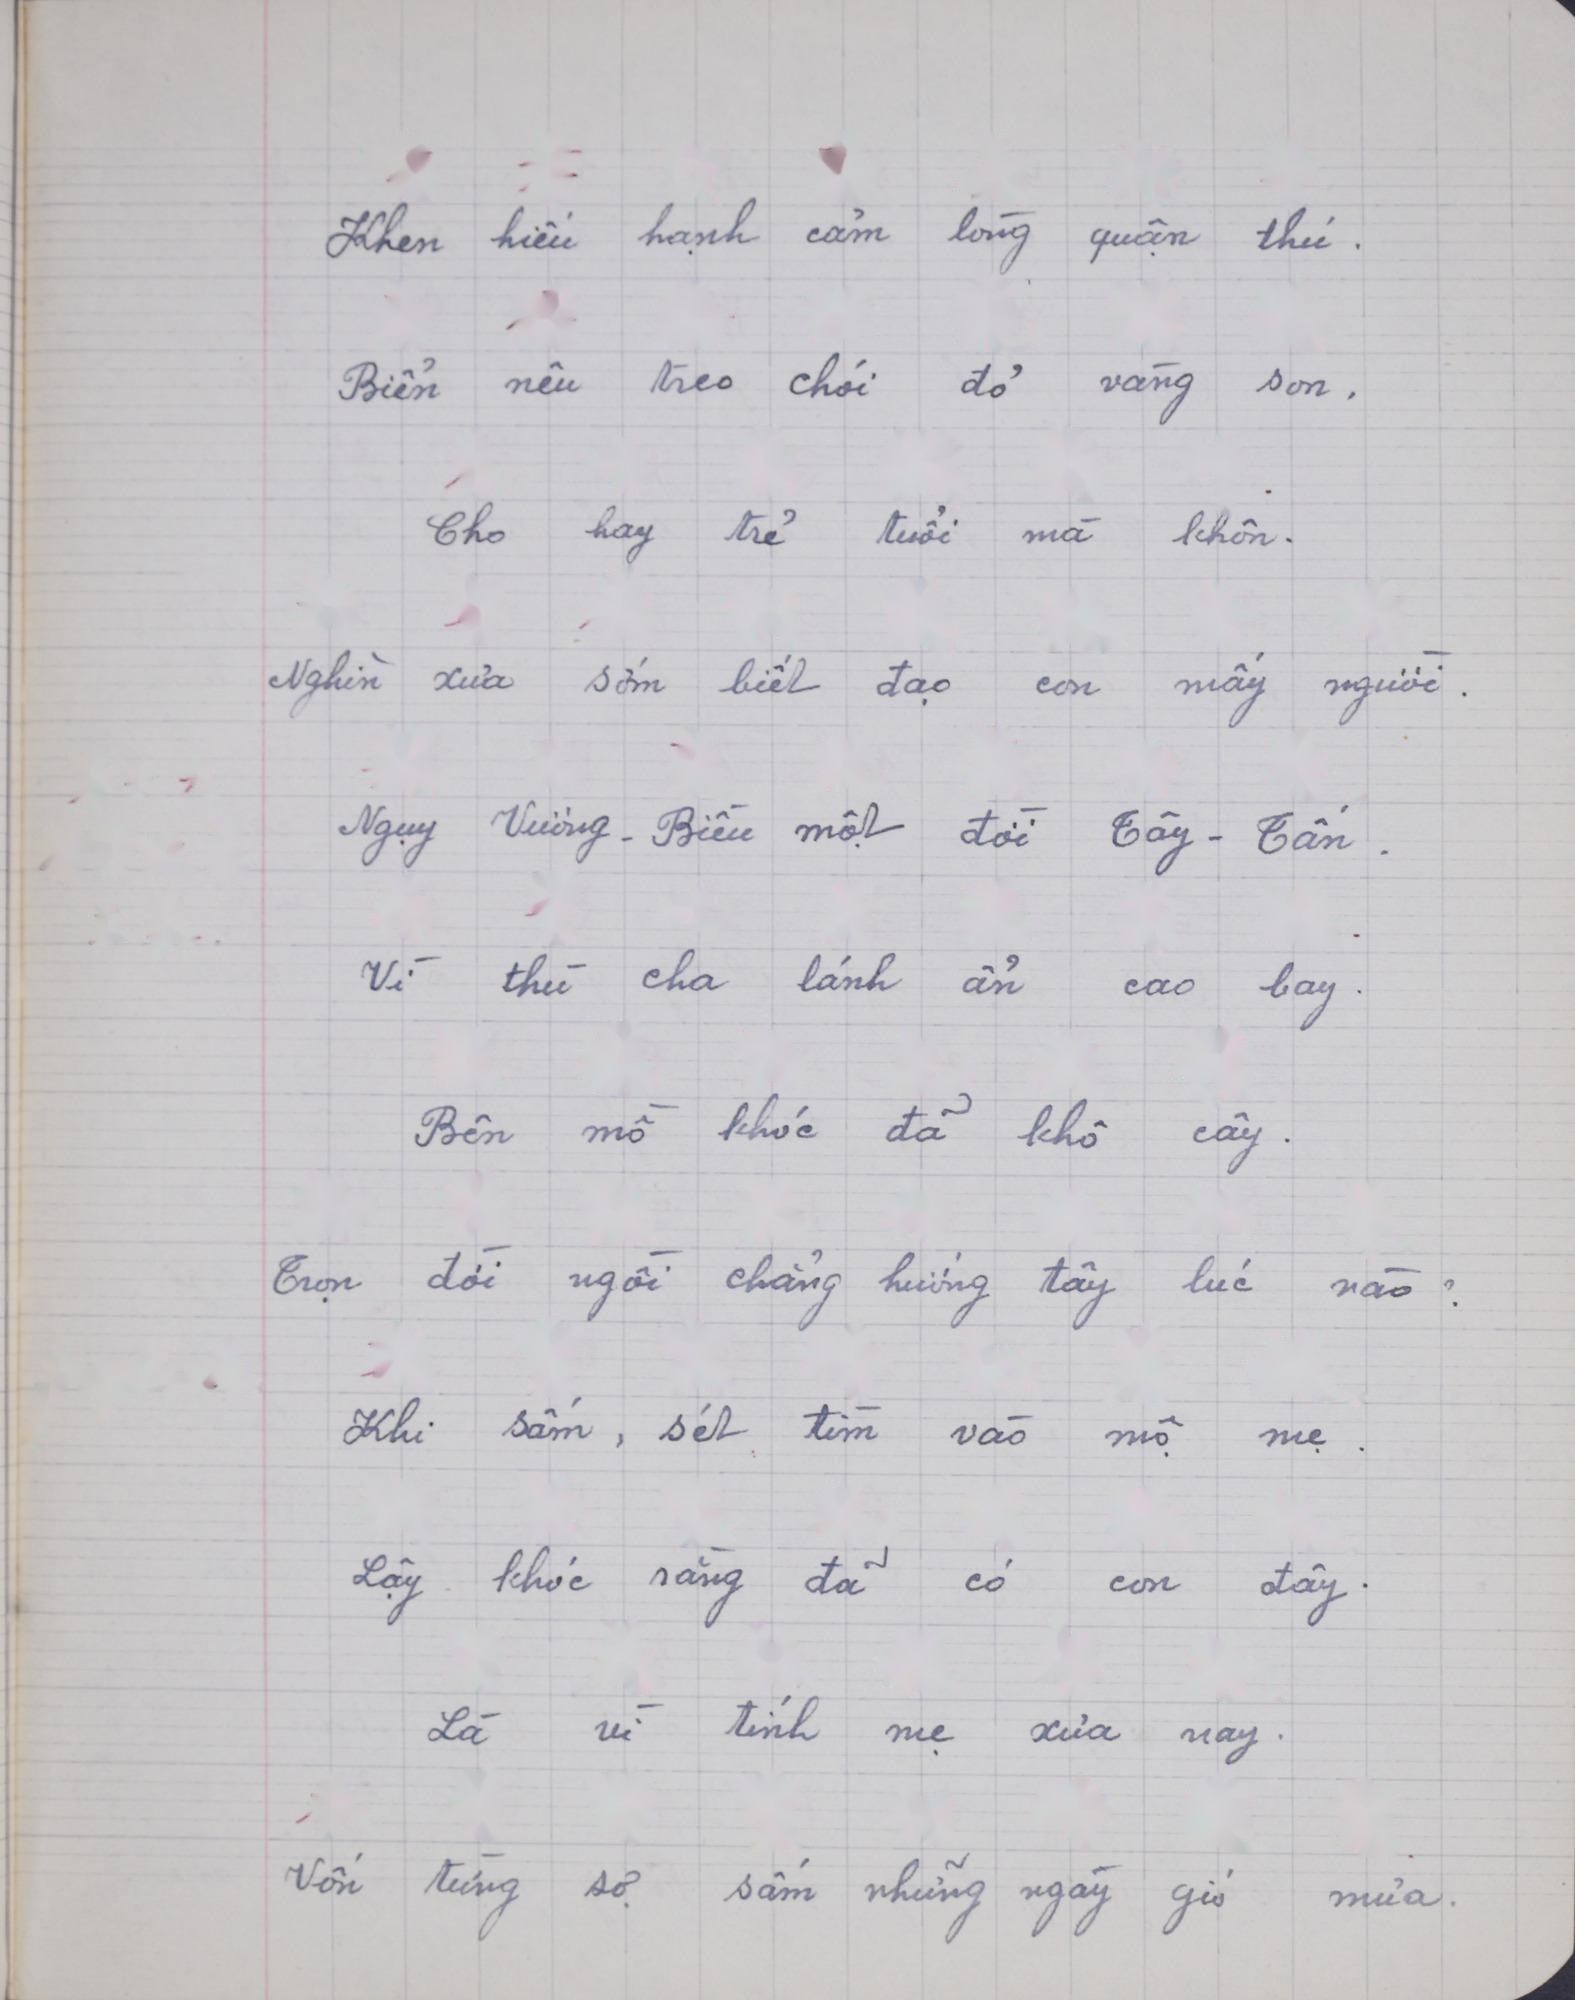 Khen hiếu hạnh cảm lòng quận thú.
Biển nêu treo chói đỏ vàng son.
Cho hay trẻ tuổi mà khôn.
Nghìn xưa sớm biết đạo con mấy người.
Ngụy Vương-Biều một đời Tây-Tấn.
Vì thù cha lánh ẩn cao bay.
Bên mồ khóc đã khô cây.
Trọn đời ngồi chẳng hướng tây lúc nào?
Khi sấm, sét tìm vào mộ mẹ.
Lậy khóc rằng đã có con đây.
Là vì tính mẹ xưa nay.
Vốn từng sợ sấm những ngày gió mưa.